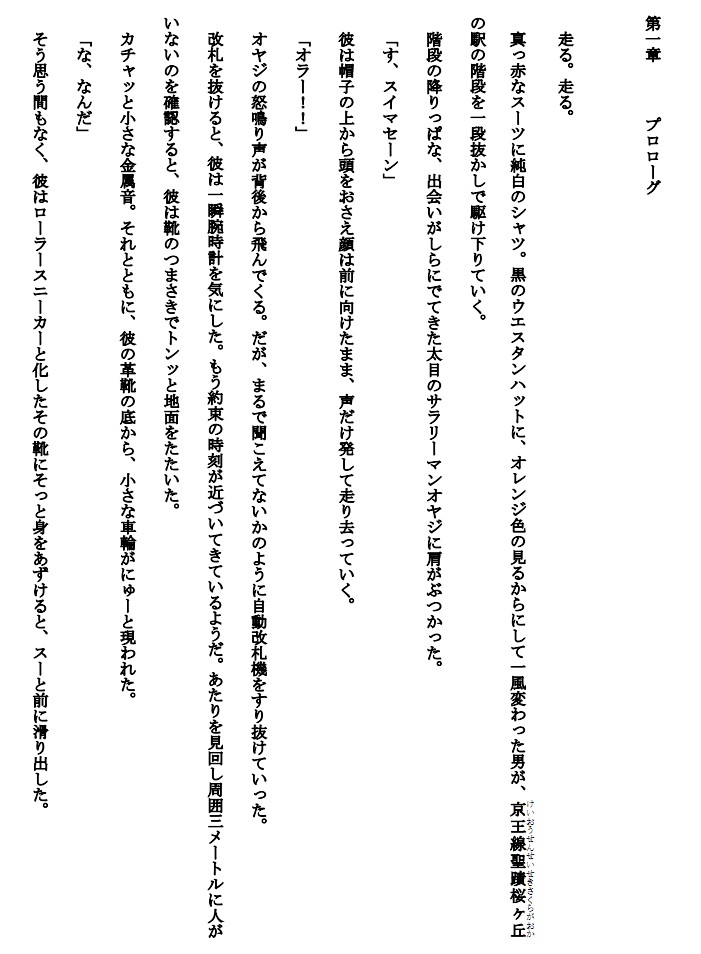 第一章　　プロローグ
走る。走る。
真っ赤なスーツに純白のシャツ。黒のウエスタンハットに、オレンジ色の見るからにして一風変わった男が、京王線聖蹟桜ヶ丘
けいおうせんせいせきさくらがおか
の駅の階段を一段抜かしで駆け下りていく。
階段の降りっぱな、出会いがしらにでてきた太目のサラリーマンオヤジに肩がぶつかった。
「す、スイマセーン」
彼は帽子の上から頭をおさえ顔は前に向けたまま、声だけ発して走り去っていく。
「オラー！！」
オヤジの怒鳴り声が背後から飛んでくる。だが、まるで聞こえてないかのように自動改札機をすり抜けていった。
改札を抜けると、彼は一瞬腕時計を気にした。もう約束の時刻が近づいてきているようだ。あたりを見回し周囲三メートルに人が
いないのを確認すると、彼は靴のつまさきでトンッと地面をたたいた。
カチャッと小さな金属音。それとともに、彼の革靴の底から、小さな車輪がにゅーと現われた。
「な、なんだ」
そう思う間もなく、彼はローラースニーカーと化したその靴にそっと身をあずけると、スーと前に滑り出した。